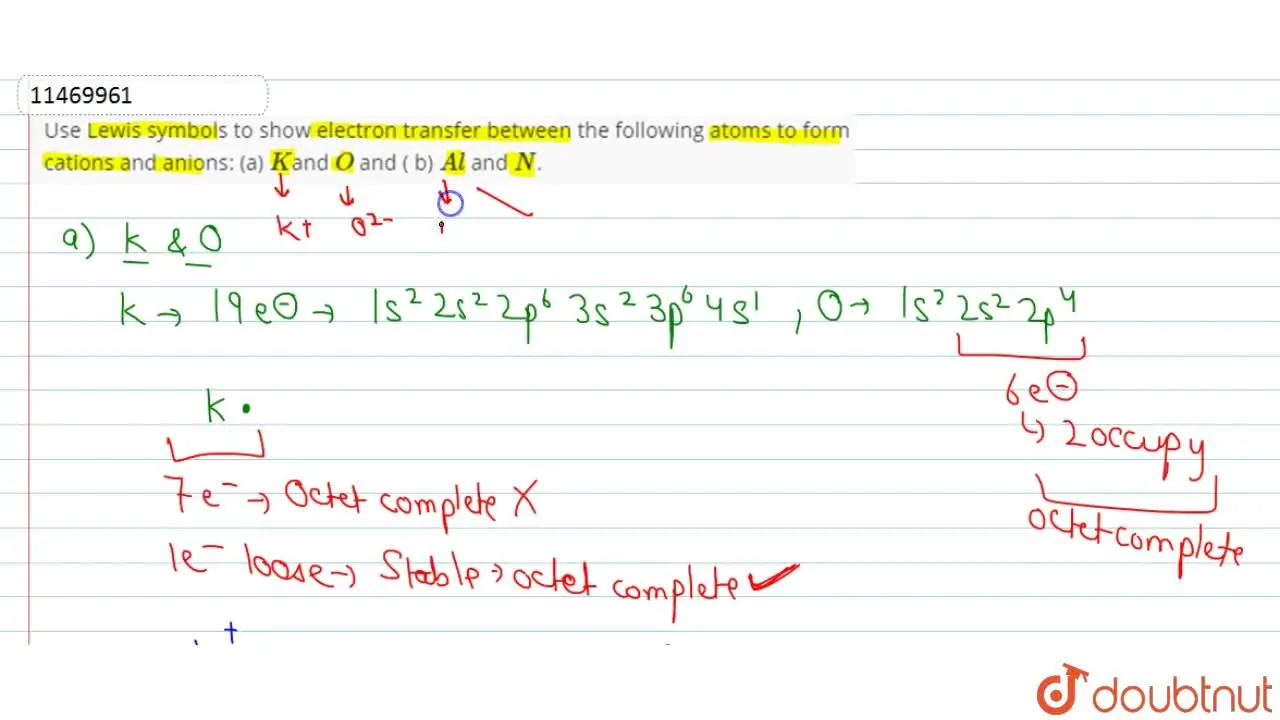 11469961
Use Lewis symbols to show electron transfer between the following atoms to form
cations and anions: (a) K and O and ( b) Al and N.
K+ O²⁻
a) K & O
K → 19e⊖ → 1s² 2s² 2p⁶ 3s² 3p⁶ 4s¹ , O → 1s² 2s² 2p⁴
6e⊖
K •
↳ 2 occupy
7e⁻ → Octet complete X
octet complete
1e⁻ loose → Stable → octet complete ✓
+
doubtnut